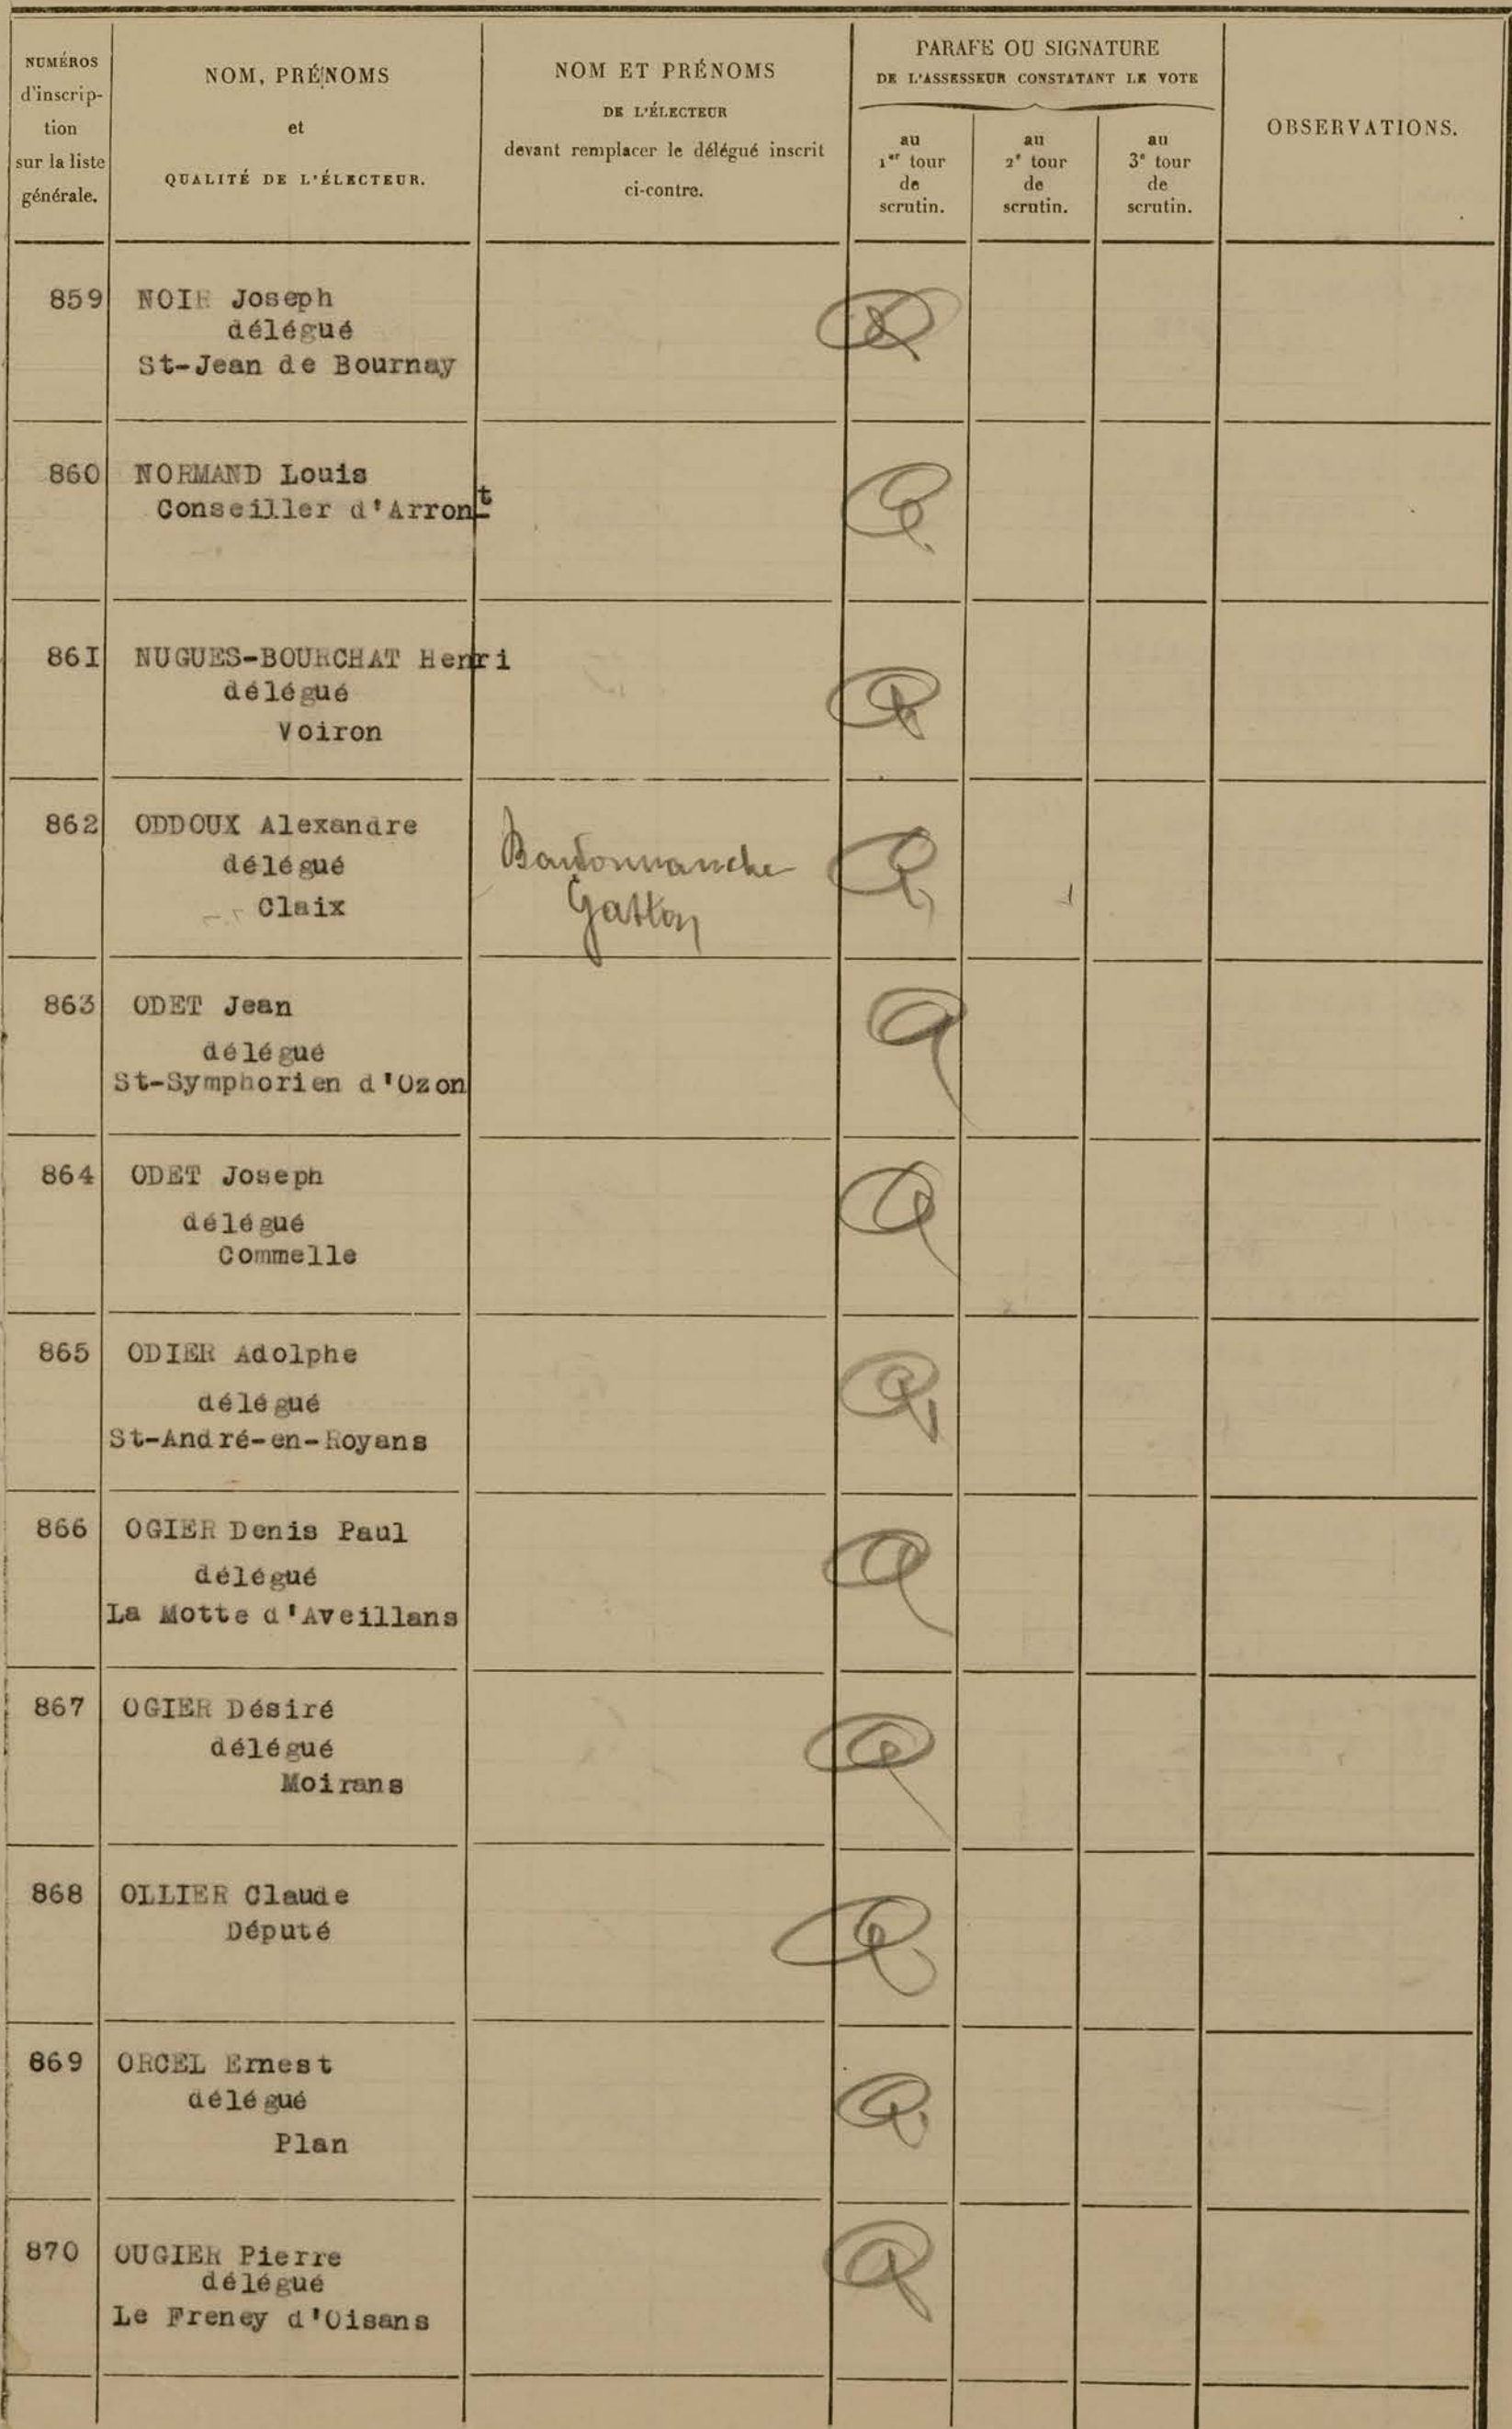 NUMÉROS
d'inscrip-
tion
sur la liste
générale.
NOM, PRÉNOMS
et
QUALITÉ DE L'ÉLECTEUR.
NOM ET PRÉNOMS
DE L'ÉLECTEUR
devant remplacer le délégué inscrit
ci-contre.
PARAFE OU SIGNATURE
DE L'ASSESSEUR CONSTATANT LE VOTE
au
1er tour
de
scrutin.
au
2e tour
de
scrutin.
au
3e tour
de
scrutin.
OBSERVATIONS.
859 NOIR Joseph
délégué
St-Jean de Bournay
860 NORMAND Louis
Conseiller d'Arront
86I NUGUES-BOURCHAT Henri
délégué
Voiron
862 ODDOUX Alexandre
délégué
Claix
Gaston
863 ODET Jean
délégué
St-Symphorien d'Ozon
864 ODET Joseph
délégué
Commelle
865 ODIER Adolphe
délégué
St-André-en-Royans
866 OGIER Denis Paul
délégué
La Motte d'Aveillans
867 OGIER Désiré
délégué
Moirans
868 OLLIER Claude
Député
869 ORCEL Ernest
délégué
Plan
870 OUGIER Pierre
délégué
Le Freney d'Oisans